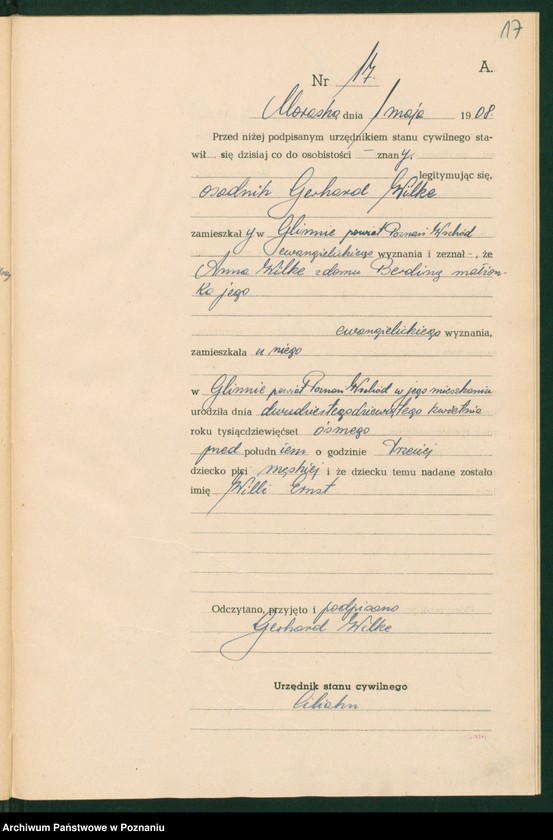 17
A.
Nr 17.
Morasko, dnia 1 maja 1908.
Przed niżej podpisanym urzędnikiem stanu cywilnego sta-
wił się dzisiaj co do osobistości – znany.
legitymując się,
osadnik Gerhard Wilke
zamieszkały w Glinnie powiat Poznań Wschód
ewangielickiego wyznania i zeznał –, że
Anna Wilke z domu Berding małżon-
ka jego
ewangielickiego wyznania,
zamieszkała u niego
w Glinnie powiat Poznań Wschód w jego mieszkaniu
urodziła dnia dwudziestego dziewiątego kwietnia
roku tysiącdziewięćset ósmego
przed południem o godzinie trzeciej
dziecko płci męskiej i że dziecku temu nadane zostało
imię Willi Ernst
Odczytano, przyjęto i podpisano
Gerhard Wilke
Urzędnik stanu cywilnego
Archiwum Państwowe w Poznaniu